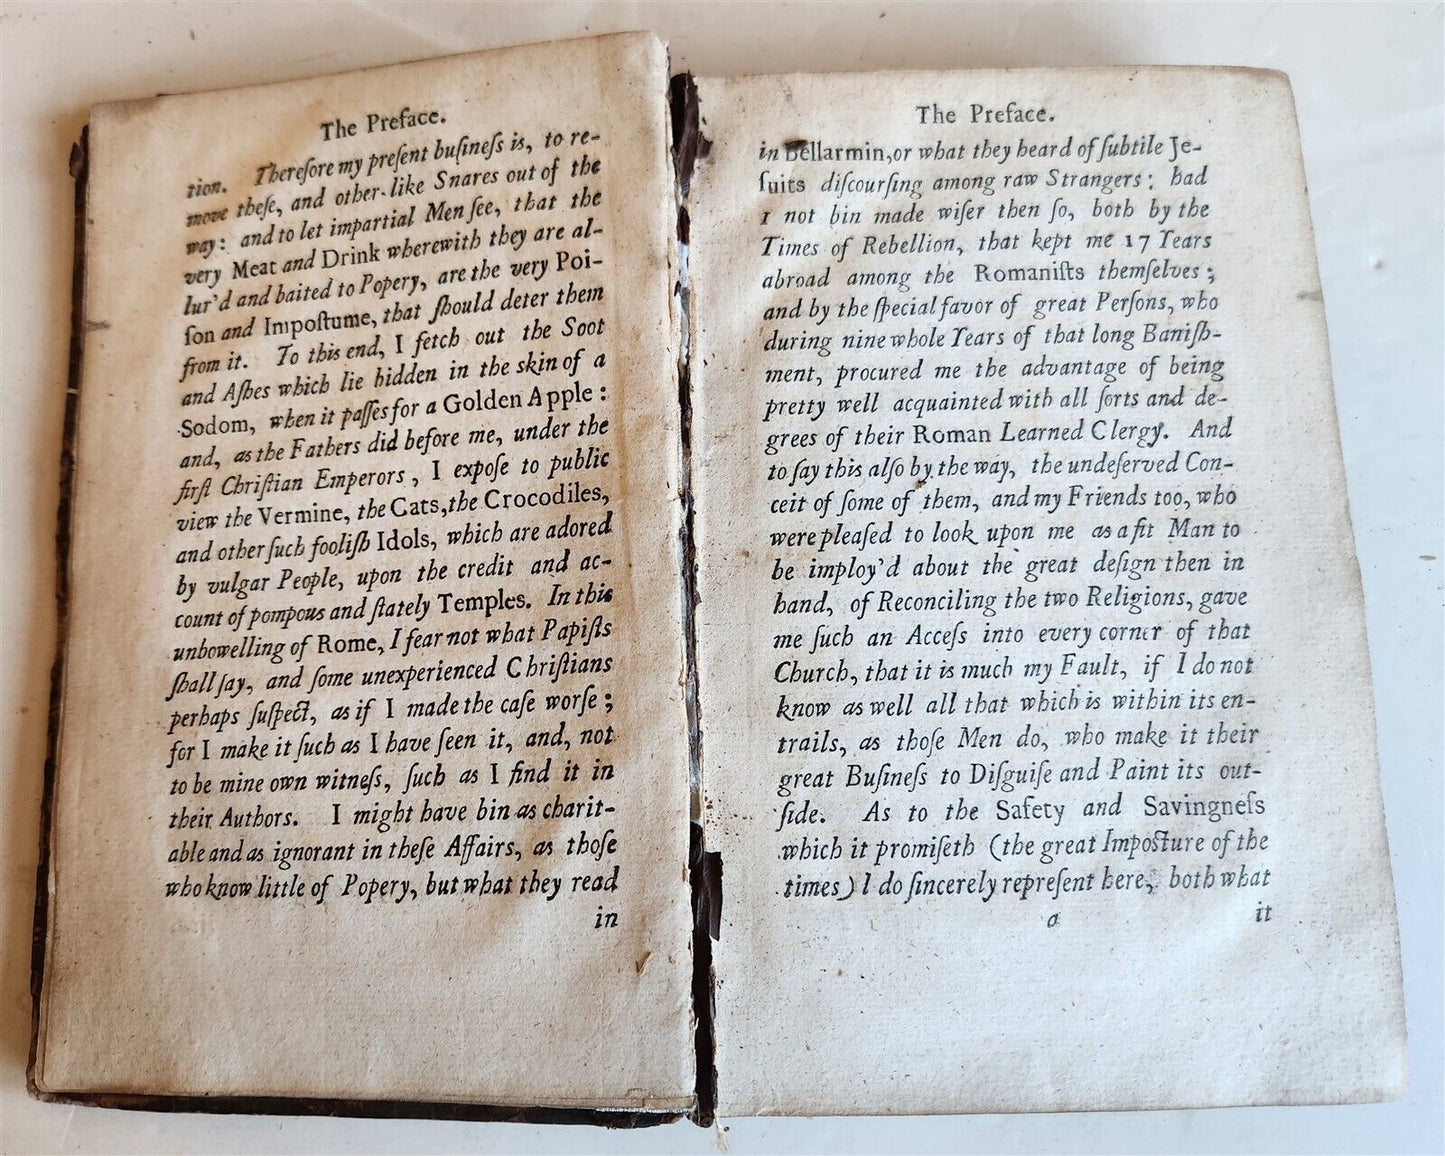 The Preface.
tion. Therefore my preſent buſineſs is, to re-
move theſe, and other-like Snares out of the
way: and to let impartial Men ſee, that the
very Meat and Drink wherewith they are al-
lur'd and baited to Popery, are the very Poi-
ſon and Impoſtume, that ſhould deter them
from it. To this end, I fetch out the Soot
and Aſhes which lie hidden in the skin of a
Sodom, when it paſſes for a Golden Apple:
and, as the Fathers did before me, under the
firſt Chriſtian Emperors, I expoſe to public
view the Vermine, the Cats, the Crocodiles,
and other ſuch fooliſh Idols, which are adored
by vulgar People, upon the credit and ac-
count of pompous and ſtately Temples. In this
unbowelling of Rome, I fear not what Papiſts
ſhall ſay, and ſome unexperienced Chriſtians
perhaps ſuſpect, as if I made the caſe worſe;
for I make it ſuch as I have ſeen it, and, not
to be mine own witneſs, ſuch as I find it in
their Authors. I might have bin as charit-
able and as ignorant in theſe Affairs, as thoſe
who know little of Popery, but what they read
in
The Preface.
in Bellarmin, or what they heard of ſubtile Je-
ſuits diſcourſing among raw Strangers; had
I not bin made wiſer then ſo, both by the
Times of Rebellion, that kept me 17 Years
abroad among the Romaniſts themſelves;
and by the ſpecial favor of great Perſons, who
during nine whole Years of that long Baniſh-
ment, procured me the advantage of being
pretty well acquainted with all ſorts and de-
grees of their Roman Learned Clergy. And
to ſay this alſo by the way, the undeſerved Con-
ceit of ſome of them, and my Friends too, who
were pleaſed to look upon me as a fit Man to
be imploy'd about the great deſign then in
hand, of Reconciling the two Religions, gave
me ſuch an Acceſs into every corner of that
Church, that it is much my Fault, if I do not
know as well all that which is within its en-
trails, as thoſe Men do, who make it their
great Buſineſs to Diſguiſe and Paint its out-
ſide. As to the Safety and Savingneſs
which it promiſeth (the great Impoſture of the
times) I do ſincerely repreſent here, both what
a it